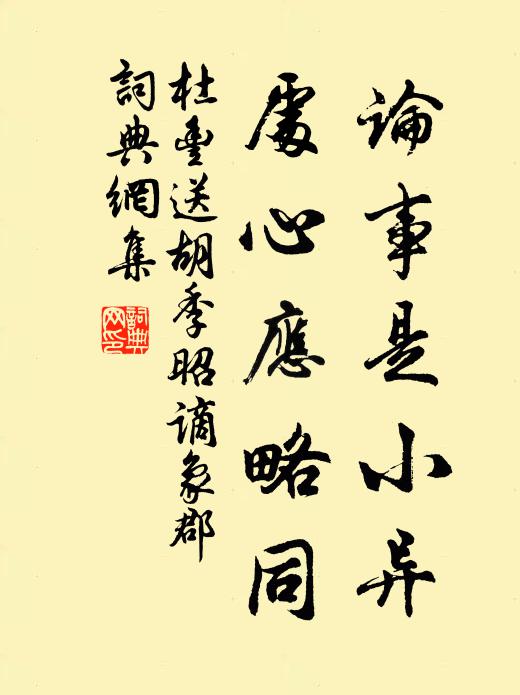 論事是小异
處心應略同
杜耒送胡季昭谪象郡
詞典網集
詞典网印